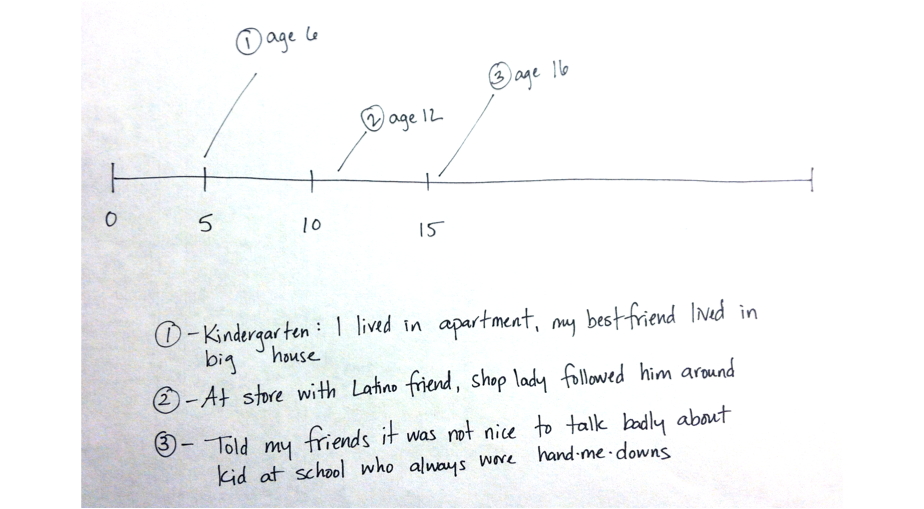 ① age 6
③ age 16
② age 12
0 5 10 15
① - Kindergarten: I lived in apartment, my best friend lived in
big house
② - At store with Latino friend, shop lady followed him around
③ - Told my friends it was not nice to talk badly about
kid at school who always wore hand-me-downs